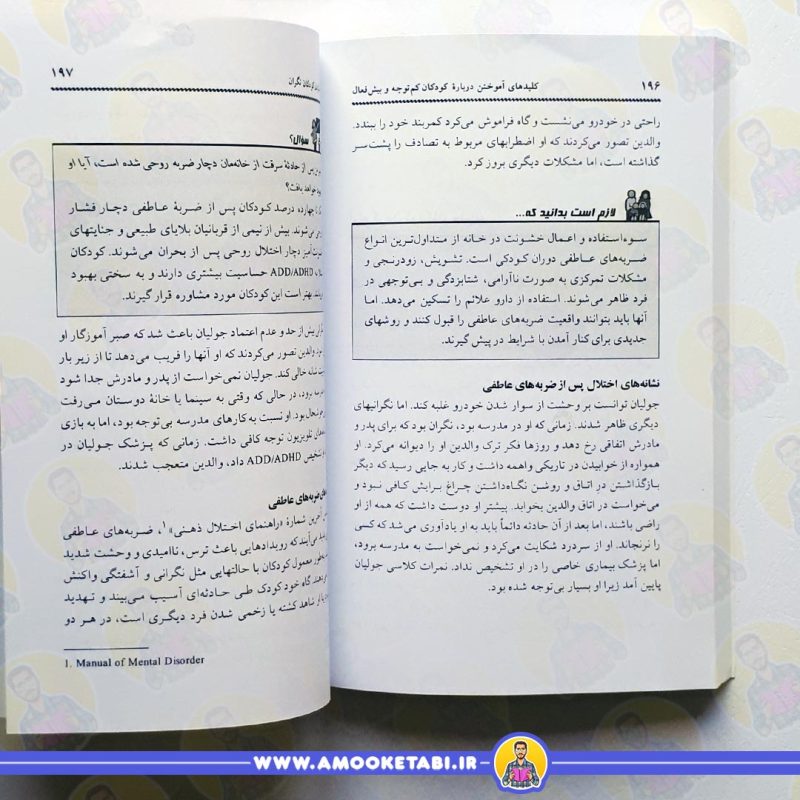 ۱۹۶
کلیدهای آموختن دربارهٔ کودکان کم‌توجه و بیش‌فعال
راحتی در خودرو می‌نشست و گاه فراموش می‌کرد کمربند خود را ببندد.
والدین تصور می‌کردند که او اضطرابهای مربوط به تصادف را پشت‌سر
گذاشته است، اما مشکلات دیگری بروز کرد.
لازم است بدانید که...
سوءاستفاده و اعمال خشونت در خانه از متداول‌ترین انواع
ضربه‌های عاطفی دوران کودکی است. تشویش، زودرنجی و
مشکلات تمرکزی به صورت ناآرامی، شتابزدگی و بی‌توجهی در
فرد ظاهر می‌شوند. استفاده از دارو علائم را تسکین می‌دهد. اما
آنها باید بتوانند واقعیت ضربه‌های عاطفی را قبول کنند و روشهای
جدیدی برای کنار آمدن با شرایط در پیش گیرند.
نشانه‌های اختلال پس از ضربه‌های عاطفی
جولیان توانست بر وحشت از سوار شدن خودرو غلبه کند. اما نگرانیهای
دیگری ظاهر شدند. زمانی که او در مدرسه بود، نگران بود که برای پدر و
مادرش اتفاقی رخ دهد و روزها فکر ترک والدین او را دیوانه می‌کرد. او
همواره از خوابیدن در تاریکی واهمه داشت و کار به جایی رسید که دیگر
بازگذاشتن در اتاق و روشن نگاه‌داشتن چراغ برایش کافی نبود و
می‌خواست در اتاق والدین بخوابد. پیشتر او دوست داشت که همه از او
راضی باشند، اما بعد از آن حادثه دائماً باید به او یادآوری می‌شد که کسی
را نرنجاند. او از سردرد شکایت می‌کرد و نمی‌خواست به مدرسه برود،
اما پزشک بیماری خاصی را در او تشخیص نداد. نمرات کلاسی جولیان
پایین آمد زیرا او بسیار بی‌توجه شده بود.
کودکان نگران
۱۹۷
سوال؟
پس از حادثهٔ سرقت از خانه‌مان دچار ضربه روحی شده است، آیا او
بهبود خواهد یافت؟
چهارده درصد کودکان پس از ضربهٔ عاطفی دچار فشار
می‌شوند. بیش از نیمی از قربانیان بلایای طبیعی و جنایتهای
آمیز دچار اختلال روحی پس از بحران می‌شوند. کودکان
ADD/ADHD حساسیت بیشتری دارند و به سختی بهبود
بهتر است این کودکان مورد مشاوره قرار گیرند.
بیش از حد و عدم اعتماد جولیان باعث شد که صبر آموزگار او
والدین تصور می‌کردند که او آنها را فریب می‌دهد تا از زیر بار
شانه خالی کند. جولیان نمی‌خواست از پدر و مادرش جدا شود
در حالی که وقتی به سینما یا خانهٔ دوستان می‌رفت
بود. او نسبت به کارهای مدرسه بی‌توجه بود، اما به بازی
تلویزیون توجه کافی داشت. زمانی که پزشک جولیان در
تشخیص ADD/ADHD داد، والدین متعجب شدند.
ضربه‌های عاطفی
آخرین شمارهٔ «راهنمای اختلال ذهنی»۱، ضربه‌های عاطفی
می‌آیند که رویدادهایی باعث ترس، ناامیدی و وحشت شدید
معمول کودکان با حالتهایی مثل نگرانی و آشفتگی واکنش
گاه خود کودک طی حادثه‌ای آسیب می‌بیند و تهدید
او شاهد کشته یا زخمی شدن فرد دیگری است، در هر دو
1. Manual of Mental Disorder
WWW.AMOOKETABI.IR